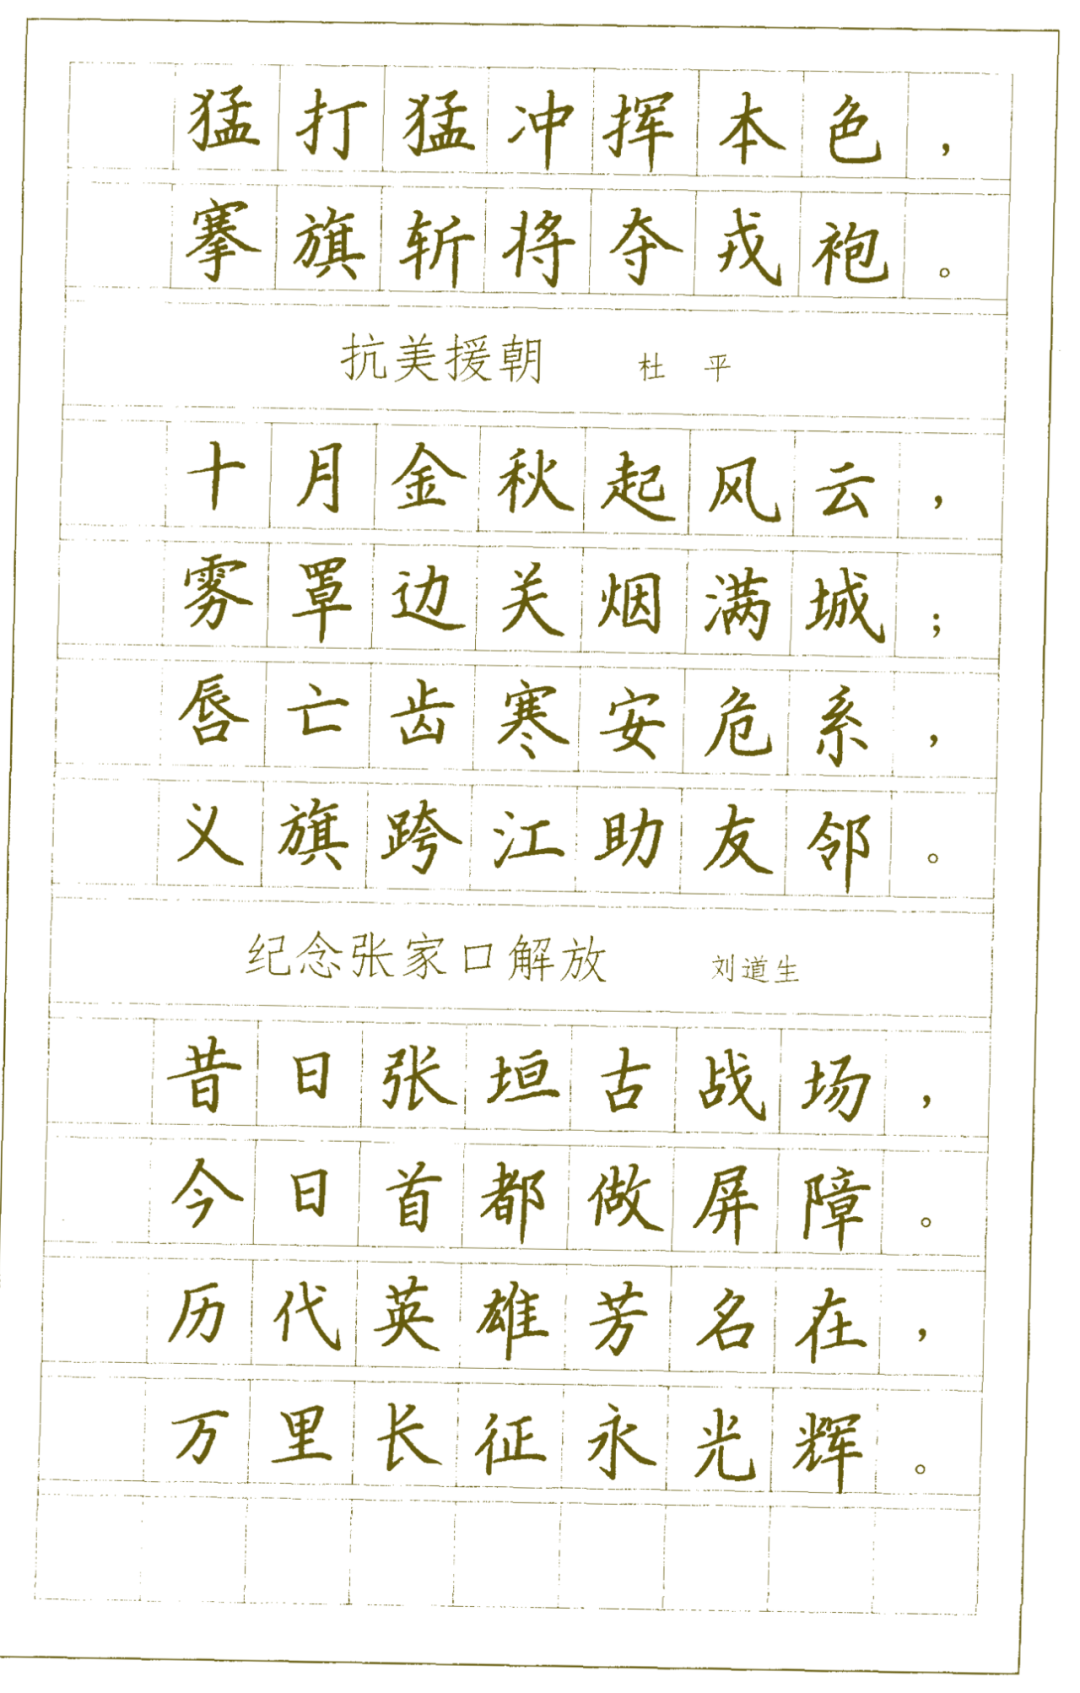 猛打猛冲挥本色，
搴旗斩将夺戎袍。
抗美援朝 杜平
十月金秋起风云，
雾罩边关烟满城；
唇亡齿寒安危系，
义旗跨江助友邻。
纪念张家口解放 刘道生
昔日张垣古战场，
今日首都做屏障。
历代英雄芳名在，
万里长征永光辉。